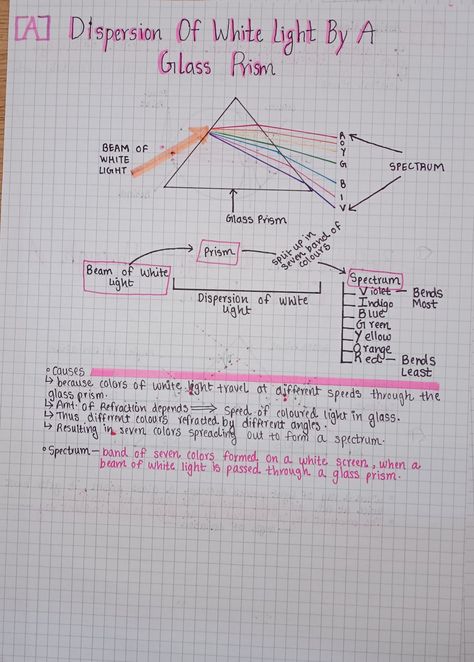 [A] Dispersion Of White Light By A
Glass Prism
BEAM OF
WHITE
LIGHT
R
O
Y
G
B
I
V
SPECTRUM
Glass Prism
Beam of white
light
Prism
split up in
seven band of
colours
Dispersion of white
light
Spectrum
Violet — Bends
Most
Indigo
Blue
Green
Yellow
Orange
Red — Bends
Least
Causes
↳ because colors of white light travel at different speeds through the
glass prism.
↳ Amt. of Refraction depends ⟹ speed of coloured light in glass.
↳ Thus different colours refracted by different angles.
↳ Resulting in seven colors spreading out to form a spectrum.
Spectrum — band of seven colors formed on a white screen, when a
beam of white light is passed through a glass prism.